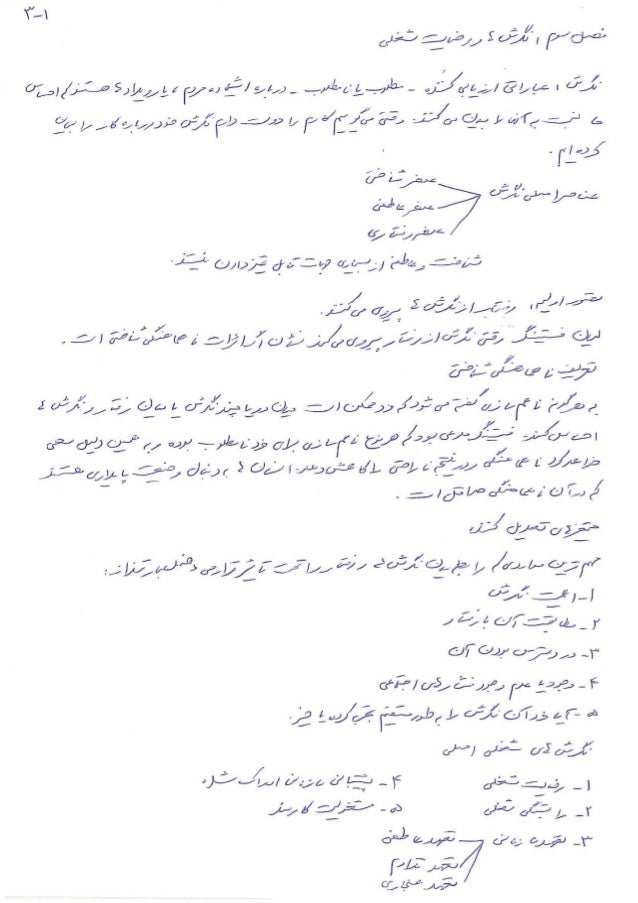 ۳-۱
فصل سوم: نگرش ها و رضایت شغلی
نگرش: عباراتی ارزیابی کننده - مطلوب یا نامطلوب - درباره اشیاء، مردم، یا رویدادها هستند که احساس
ما نسبت به آنها را بیان می کنند. وقتی می گوییم کارم را دوست دارم نگرش خود درباره کار را بیان
کرده ایم.
عناصر اصلی نگرش
عنصر شناختی
عنصر عاطفی
عنصر رفتاری
شناخت و عاطفه از بسیاری جهات قابل تمیز دادن نیستند.
تصور اولیه: رفتار از نگرش ها پیروی می کند.
لئون فستینگر وقتی نگرش از رفتار پیروی می کند نشان اثرات ناهماهنگی شناختی است.
تعریف ناهماهنگی شناختی
به هرگونه ناهم سازی گفته می شود که فرد ممکن است میان دو یا چند نگرش یا میان رفتار و نگرش ها
احساس کند. فستینگر مدعی بود که هر نوع ناهم سازی برای فرد نامطلوب بوده و به همین دلیل سعی
خواهد کرد ناهماهنگی و در نتیجه ناراحتی را کاهش دهد. انسان ها به دنبال وضعیت پایداری هستند
که در آن ناهماهنگی حداقل است.
متغیرهای تعدیل کننده
مهم ترین مواردی که رابطه میان نگرش ها و رفتار را تحت تاثیر قرار می دهند عبارتند از:
۱- اهمیت نگرش
۲- مطابقت آن با رفتار
۳- در دسترس بودن آن
۴- وجود یا عدم وجود فشارهای اجتماعی
۵- آیا فرد آن نگرش را به طور مستقیم تجربه کرده یا خیر.
نگرش های شغلی اصلی
۱- رضایت شغلی
۲- وابستگی شغلی
۳- تعهد سازمانی
تعهد عاطفی
تعهد تداوم
تعهد هنجاری
۴- پشتیبانی سازمانی ادراک شده
۵- مشغولیت کارمند